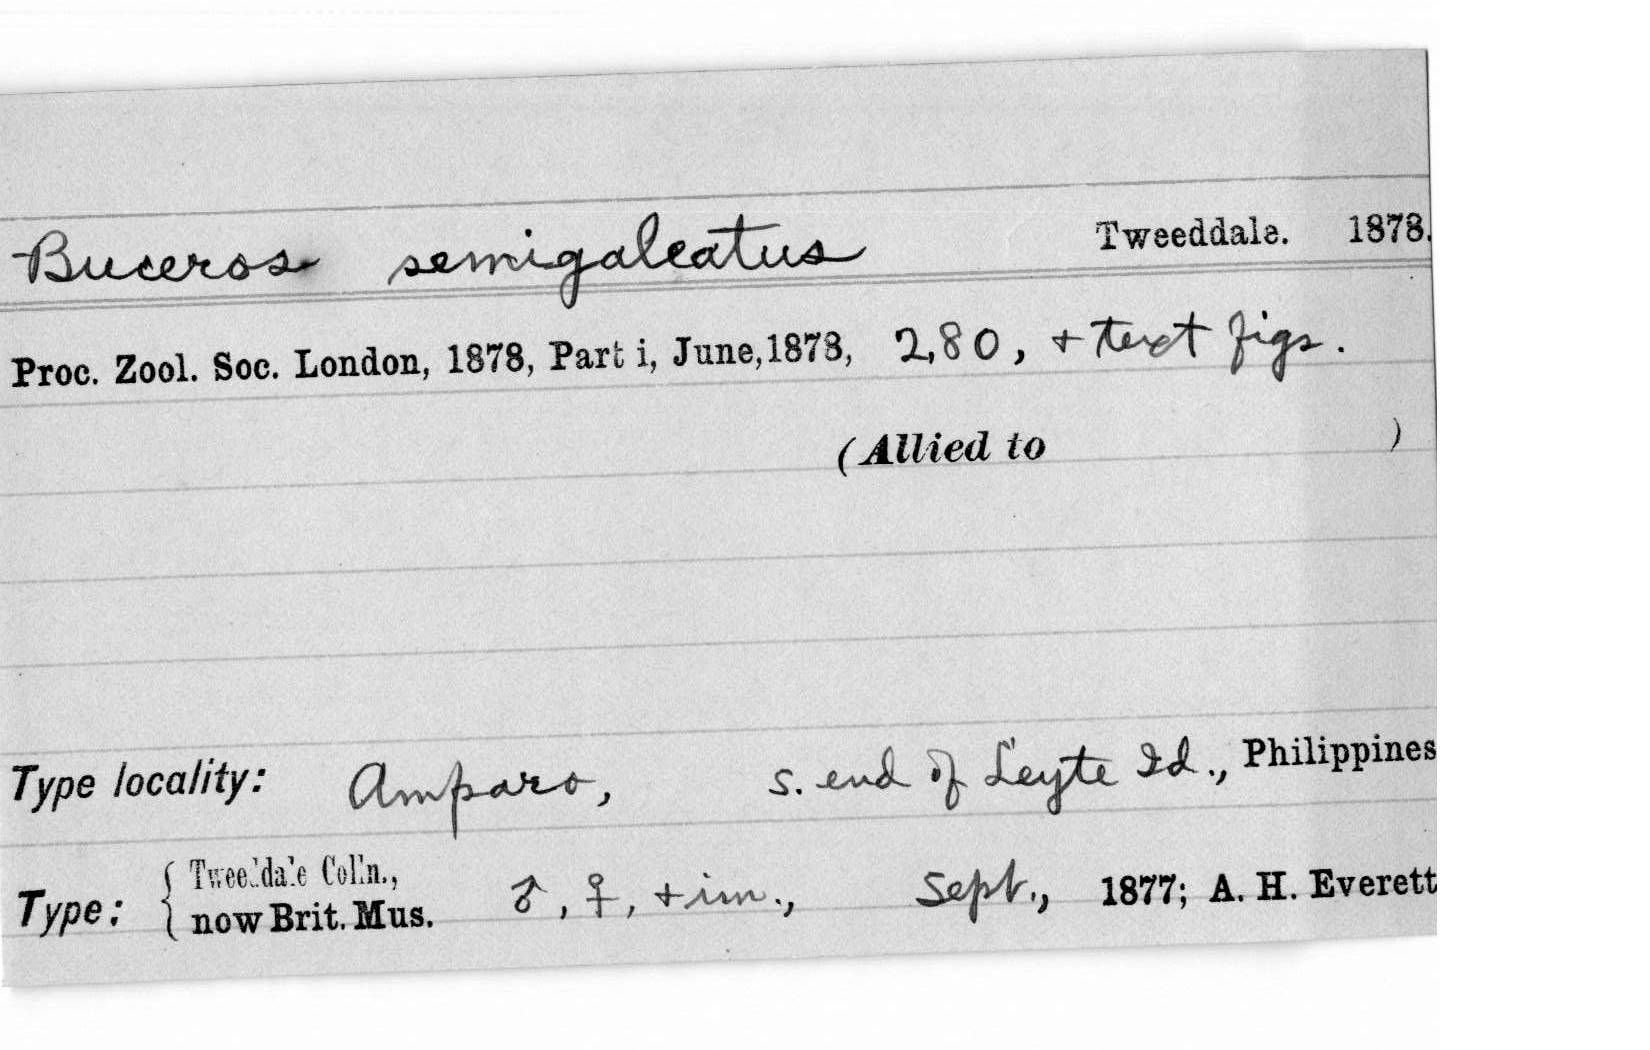 Buceros semigaleatus Tweeddale. 1878.
Proc. Zool. Soc. London, 1878, Part i, June, 1878, 280, + text figs.
(Allied to )
Type locality: Amparo, s. end of Leyte Id., Philippines
Type: { Tweeddale Coll'n.,
now Brit. Mus. ♂, ♀, + im., Sept., 1877; A. H. Everett